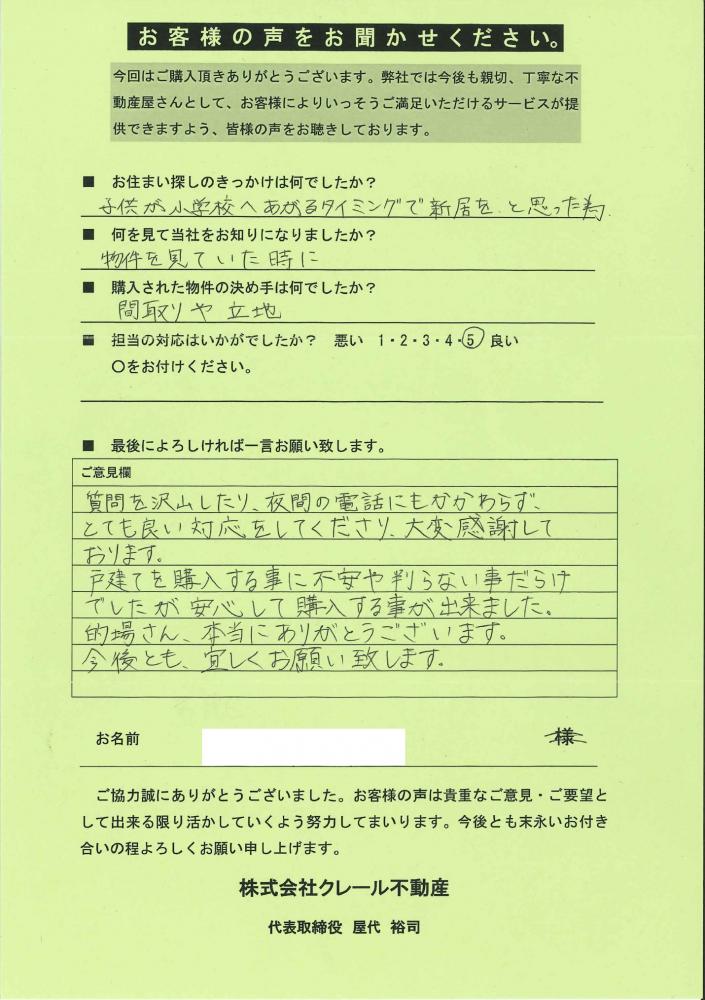 お客様の声をお聞かせください。
今回はご購入頂きありがとうございます。弊社では今後も親切、丁寧な不
動産屋さんとして、お客様によりいっそうご満足いただけるサービスが提
供できますよう、皆様の声をお聴きしております。
■ お住まい探しのきっかけは何でしたか？
子供が小学校へあがるタイミングで新居を、と思った為。
■ 何を見て当社をお知りになりましたか？
物件を見ていた時に
■ 購入された物件の決め手は何でしたか？
間取りや立地
■ 担当の対応はいかがでしたか？ 悪い 1・2・3・4・5 良い
〇をお付けください。
■ 最後によろしければ一言お願い致します。
ご意見欄
質問を沢山したり、夜間の電話にもかかわらず、
とても良い対応をしてくださり、大変感謝して
おります。
戸建てを購入する事に不安や判らない事だらけ
でしたが安心して購入する事が出来ました。
的場さん、本当にありがとうございます。
今後とも、宜しくお願い致します。
お名前 様
ご協力誠にありがとうございました。お客様の声は貴重なご意見・ご要望と
して出来る限り活かしていくよう努力してまいります。今後とも末永いお付き
合いの程よろしくお願い申し上げます。
株式会社クレール不動産
代表取締役 屋代 裕司